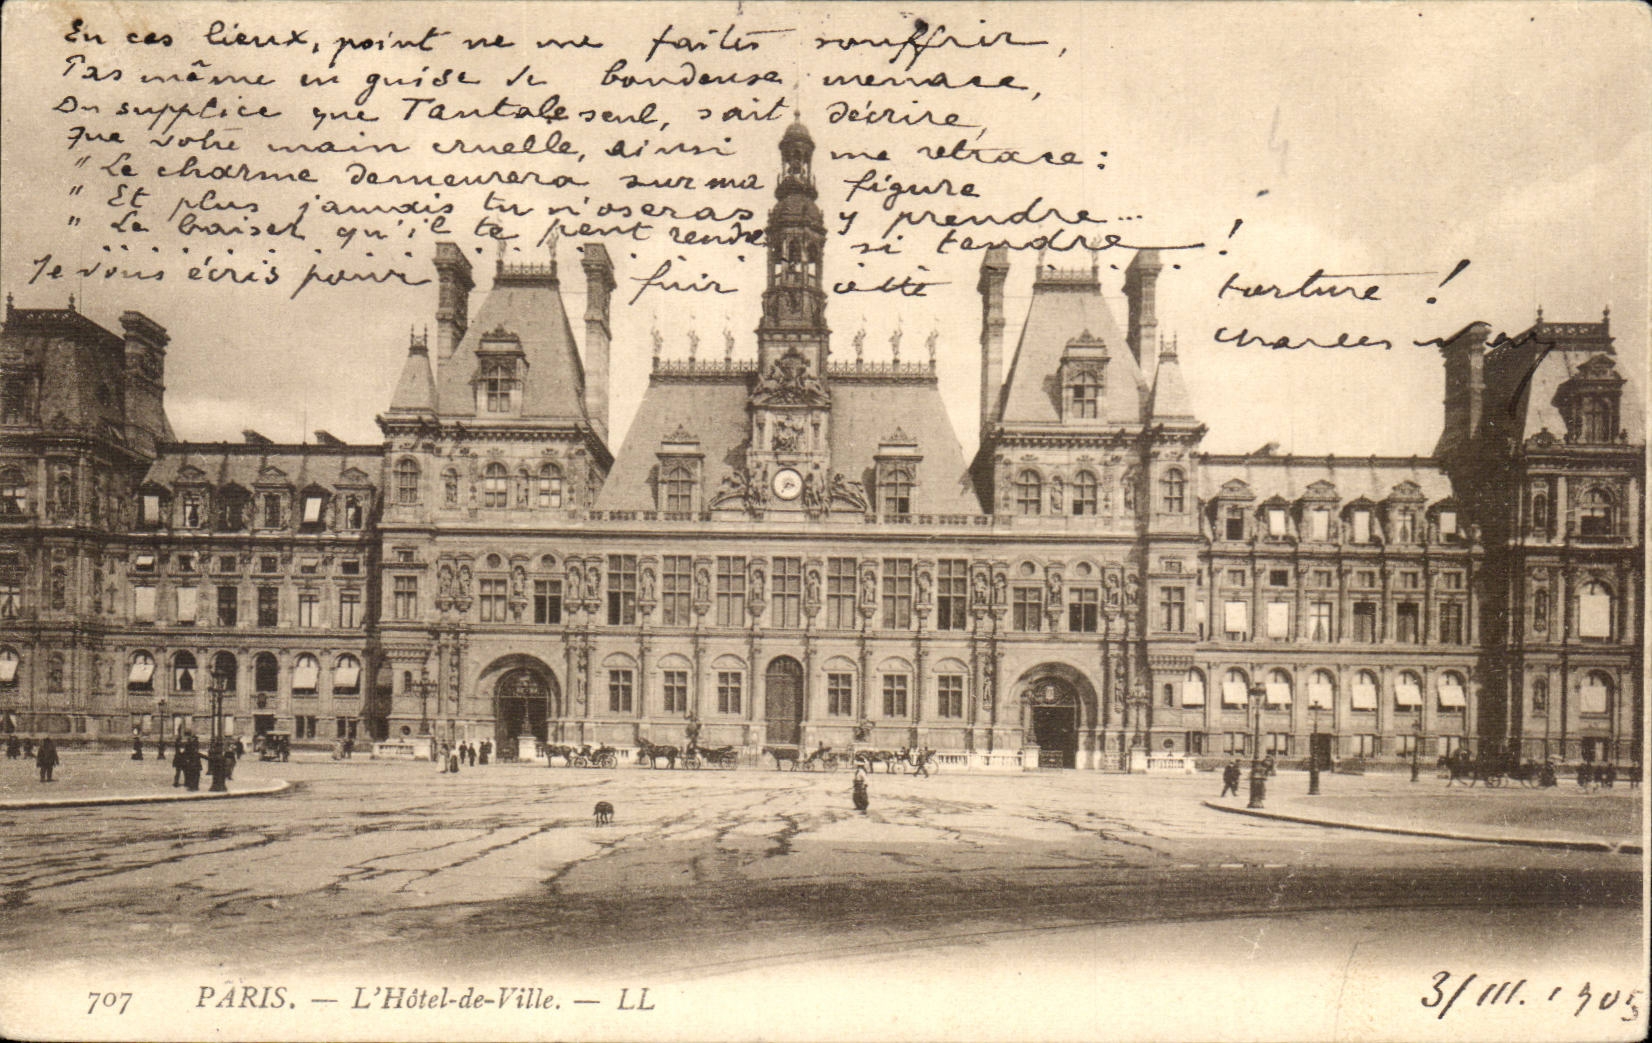 En ces lieux, point ne me faites souffrir,
Pas même en guise de boudeuse menace,
Du supplice que Tantale seul, sait décrire,
Que votre main cruelle, ainsi me retrace :
" Le charme demeurera sur ma figure
" Et plus jamais tu n'oseras y prendre...
" Le baiser qu'il te peut rendre si tendre !
Je vous écris pour fuir cette torture !
Charles
3/III. 1905
707 PARIS. — L'Hôtel-de-Ville. — LL